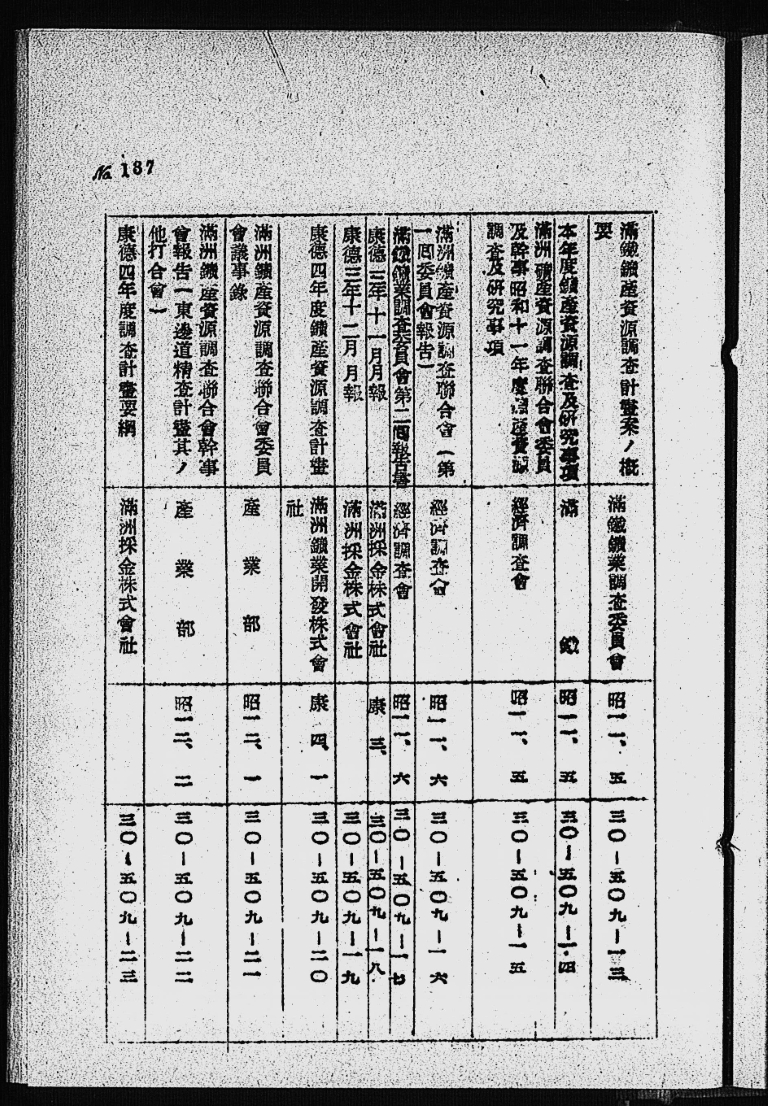 No. 187
滿鐵鑛產資源調査計畫案ノ概
要
滿鐵鑛業調査委員會
昭一一、五
三〇—五〇九—一三
本年度鑛產資源調査及研究事項
滿鐵
昭一一、五
三〇—五〇九—一四
滿洲鑛產資源調査聯合會委員
及幹事昭和十一年度鑛產資源
調査及研究事項
經濟調査會
昭一一、五
三〇—五〇九—一五
滿洲鑛產資源調査聯合會（第
一回委員會報告）
經濟調査會
昭一一、六
三〇—五〇九—一六
滿鐵鑛業調査委員會第二回報告書
經濟調査會
昭一一、六
三〇—五〇九—一七
康德三年十一月月報
滿洲採金株式會社
康三、
三〇—五〇九—一八
康德三年十二月月報
滿洲採金株式會社
三〇—五〇九—一九
康德四年度鑛產資源調査計畫
滿洲鑛業開發株式會
社
康四、一
三〇—五〇九—二〇
滿洲鑛產資源調査聯合會委員
會議事錄
產業部
昭一二、一
三〇—五〇九—二一
滿洲鑛產資源調査聯合會幹事
會報告（東邊道精査計畫其ノ
他打合會）
產業部
昭一二、二
三〇—五〇九—二二
康德四年度調査計畫要綱
滿洲採金株式會社
三〇—五〇九—二三